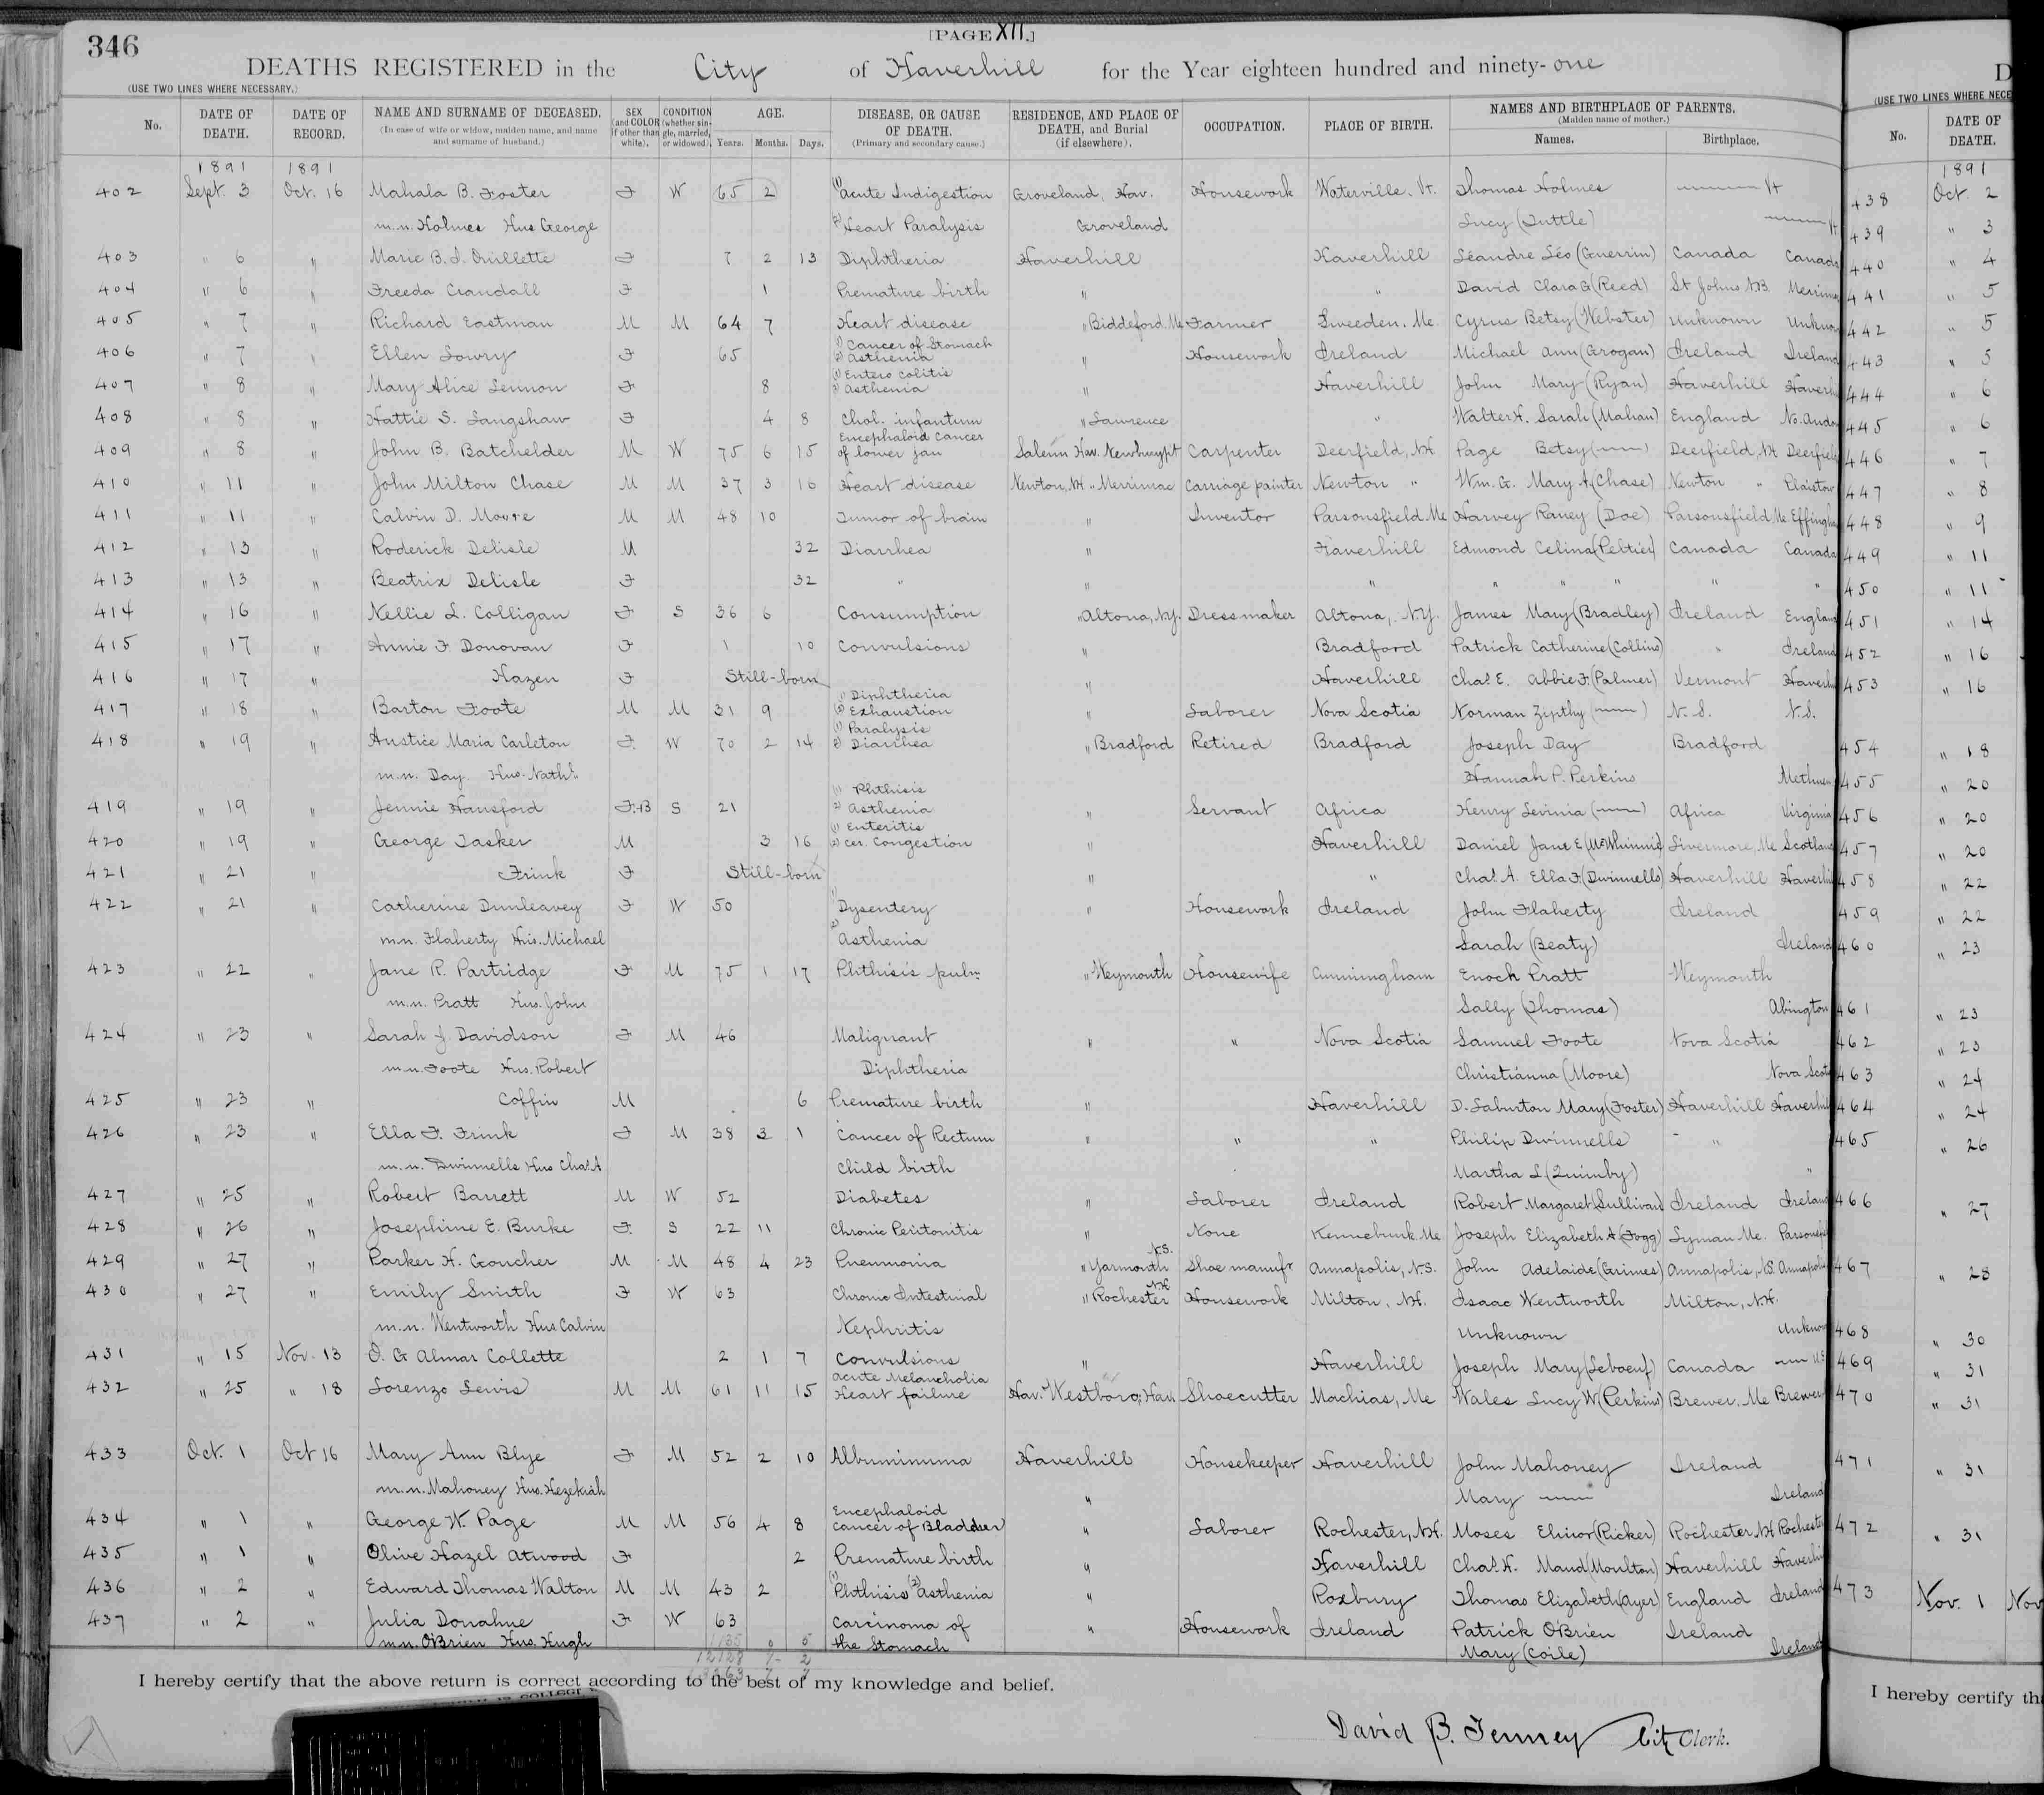 346
[PAGE XII.]
DEATHS REGISTERED in the City of Haverhill for the Year eighteen hundred and ninety-one
(USE TWO LINES WHERE NECESSARY.)
No. DATE OF DEATH. DATE OF RECORD. NAME AND SURNAME OF DECEASED. (In case of wife or widow, maiden name, and name and surname of husband.) SEX (and COLOR if other than white). CONDITION (whether single, married, or widowed). AGE. Years. Months. Days. DISEASE, OR CAUSE OF DEATH. (Primary and secondary cause.) RESIDENCE, AND PLACE OF DEATH, and Burial (if elsewhere). OCCUPATION. PLACE OF BIRTH. NAMES AND BIRTHPLACE OF PARENTS. (Maiden name of mother.) Names. Birthplace.
1891 1891
402 Sept. 3 Oct. 16 Mahala B. Foster F W 65 2 (1) Acute Indigestion Groveland, Hav. Housework Waterville, Vt. Thomas Holmes —— Vt
m.n. Holmes Hus George (2) Heart Paralysis Groveland Lucy (Tuttle) —— Vt.
403 " 6 " Marie B. I. Ouillette F 7 2 13 Diphtheria Haverhill Haverhill Léandre Léo (Guerrin) Canada Canada
404 " 6 " Freeda Crandall F 1 Premature birth " " David Clara G (Reed) St Johns N.B.
405 " 7 " Richard Eastman M M 64 7 Heart disease " Biddeford, Me Farmer Sweeden, Me. Cyrus Betsy (Webster) Unknown Unknow
406 " 7 " Ellen Lowry F 65 (1) Cancer of Stomach (2) Asthenia " Housework Ireland Michael Ann (Grogan) Ireland Ireland
407 " 8 " Mary Alice Lennon F 8 (1) Entero colitis (2) Asthenia " Haverhill John Mary (Ryan) Haverhill Haverhi
408 " 8 " Hattie S. Langshaw F 4 8 Chol. infantum " Lawrence " Walter H. Sarah (Mahan) England No. Ando
409 " 8 " John B. Batchelder M W 75 6 15 Encephaloid Cancer of lower jaw Salem Hav. Newburypt Carpenter Deerfield, N.H. Page Betsy (——) Deerfield, N.H. Deerfield
410 " 11 " John Milton Chase M M 37 3 16 Heart disease Newton, N.H. " Merrimac Carriage painter Newton " Wm. G. Mary A (Chase) Newton " Plaistow
411 " 11 " Calvin D. Moore M M 48 10 Tumor of brain " Inventor Parsonsfield Me Harvey Raney (Doe) Parsonsfield Me. Effingha
412 " 13 " Roderick Delisle M 32 Diarrhea " Haverhill Edmond Celina (Peltier) Canada Canada
413 " 13 " Beatrix Delisle F 32 " " " " " " "
414 " 16 " Nellie L. Colligan F S 36 6 Consumption " Altona, N.Y. Dressmaker Altona, N.Y. James Mary (Bradley) Ireland England
415 " 17 " Annie F. Donovan F 1 10 Convulsions " Bradford Patrick Catherine (Collins) " Ireland
416 " 17 " Hazen F Still-born " Haverhill Chas. E. Abbie F. (Palmer) Vermont Haverh
417 " 18 " Barton Foote M M 31 9 (1) Diphtheria (2) Exhaustion " Laborer Nova Scotia Norman Zipthy (——) N.S. N.S.
418 " 19 " Austice Maria Carleton F. W 70 2 14 (1) Paralysis (2) Diarrhea " Bradford Retired Bradford Joseph Day Bradford
m.n. Day. Hus. Nathl. Hannah P. Perkins Methuen
419 " 19 " Jennie Hansford F.B S 21 (1) Phthisis (2) Asthenia " Servant Africa Henry Levinia (——) Africa Virginia
420 " 19 " George Tasker M 3 16 (1) Enteritis (2) Cer. Congestion " Haverhill Daniel Jane E (McWhinnie) Livermore, Me Scotland
421 " 21 " Frink F Still-born " " Chas. A. Ella F. (Dwinnells) Haverhill Haverhi
422 " 21 " Catherine Dunleavey F W 50 (1) Dysentery " Housework Ireland John Flaherty Ireland
m.n. Flaherty Hus. Michael (2) Asthenia Sarah (Beaty) Ireland
423 " 22 " Jane R. Partridge F M 75 1 17 Phthisis pulm. " Weymouth Housewife Cunningham Enoch Pratt Weymouth
m.n. Pratt Hus. John Sally (Thomas) Abington
424 " 23 " Sarah J Davidson F M 46 Malignant " " Nova Scotia Samuel Foote Nova Scotia
m.n. Foote Hus. Robert Diphtheria Christianna (Moore) Nova Scot
425 " 23 " Coffin M 6 Premature birth " Haverhill D. Mary (Foster) Haverhill Haverhil
426 " 23 " Ella F. Frink F M 38 3 1 Cancer of Rectum " " " Philip Dwinnells "
m.n. Dwinnells Hus Chas. A Child birth Martha L (Quimby) "
427 " 25 " Robert Barrett M W 52 Diabetes " Laborer Ireland Robert Margaret (Sullivan) Ireland Ireland
428 " 26 " Josephine E. Burke F. S 22 11 Chronic Peritonitis " None Kennebunk, Me Joseph Elizabeth A (Fogg) Lyman Me. Parsonsfi
429 " 27 " Parker H. Goucher M M 48 4 23 Pneumonia " Yarmouth N.S. Shoe manufr Annapolis, N.S. John Adelaide (Grimes) Annapolis, N.S. Annapolis
430 " 27 " Emily Smith F W 63 Chronic Intestinal " Rochester N.H. Housework Milton, N.H. Isaac Wentworth Milton, N.H.
m.n. Wentworth Hus Calvin Nephritis Unknown Unknow
431 " 15 Nov. 13 O. G Almar Collette 2 1 7 Convulsions " Haverhill Joseph Mary (Leboeuf) Canada —— U.S
432 " 25 " 18 Lorenzo Lewis M M 61 11 15 Acute Melancholia Heart failure Hav. Westboro, Hav. Shoecutter Machias, Me Wales Lucy W (Perkins) Brewer, Me Brewer
433 Oct. 1 Oct 16 Mary Ann Blye F M 52 2 10 Albuminuria Haverhill Housekeeper Haverhill John Mahoney Ireland
m.n. Mahoney Hus. Hezekiah " Mary —— Ireland
434 " 1 " George W. Page M M 56 4 8 Encephaloid cancer of Bladder " Laborer Rochester, N.H. Moses Elinor (Ricker) Rochester N.H. Rochester
435 " 1 " Olive Hazel Atwood F 2 Premature birth " Haverhill Chas. H. Maud (Moulton) Haverhill Haverhi
436 " 2 " Edward Thomas Walton M M 43 2 (1) Phthisis (2) Asthenia " Roxbury Thomas Elizabeth (Ayer) England Ireland
437 " 2 " Julia Donahue F W 63 Carcinoma of " Housework Ireland Patrick O'Brien Ireland
m.n. O'Brien Hus. Hugh the Stomach Mary (Coile) Ireland
I hereby certify that the above return is correct according to the best of my knowledge and belief.
David B. Tenney City Clerk.
D
(USE TWO LINES WHERE NECE
No. DATE OF DEATH.
1891
438 Oct. 2
439 " 3
440 " 4
441 " 5
442 " 5
443 " 5
444 " 6
445 " 6
446 " 7
447 " 8
448 " 9
449 " 11
450 " 11
451 " 14
452 " 16
453 " 16
454 " 18
455 " 20
456 " 20
457 " 20
458 " 22
459 " 22
460 " 23
461 " 23
462 " 23
463 " 24
464 " 24
465 " 26
466 " 27
467 " 28
468 " 30
469 " 31
470 " 31
471 " 31
472 " 31
473 Nov. 1 Nov
I hereby certify tha